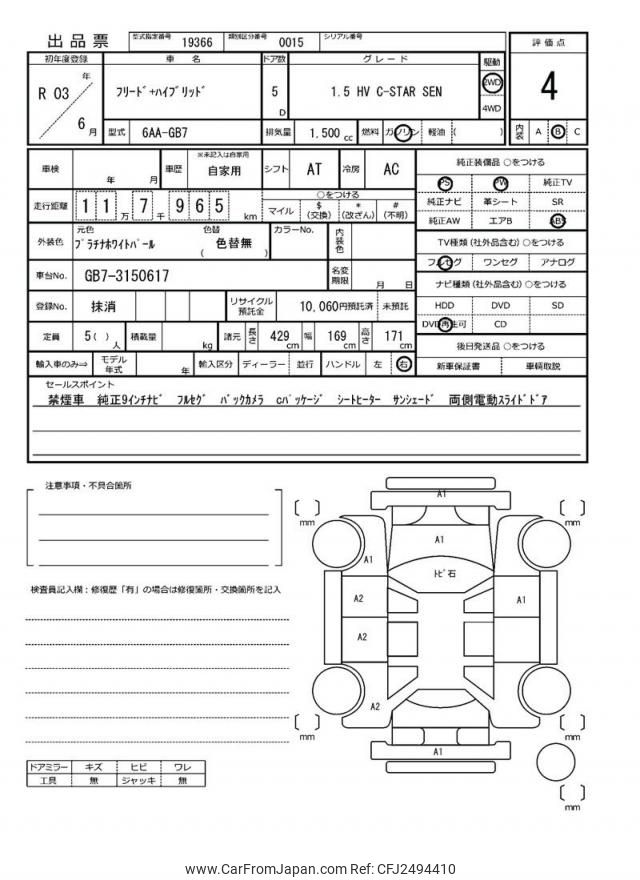 出品票
型式指定番号 19366 類別区分番号 0015 シリアル番号
評価点
4
初年度登録 車名 ドア数 グレード 駆動
R 03 年 6月
フリード+ハイブリッド 5 D 1.5 HV C-STAR SEN 2WD
4WD
型式 6AA-GB7 排気量 1.500 cc 燃料 ガソリン 軽油 ( )
内装 A B C
車検 年 月 車歴 ※未記入は自家用 自家用 シフト AT 冷房 AC
走行距離 1 1 万 7 千 9 6 5 km
○をつける
マイル $(交換) *(改ざん) #(不明)
外装色 元色 プラチナホワイトパール 色替 ( 色替無 ) カラーNo. 内装色
車台No. GB7-3150617 名変期限 月 日
登録No. 抹消 リサイクル預託金 10,060円預託済 未預託
定員 5( )人 積載量 kg 諸元 長さ 429 cm 幅 169 cm 高さ 171 cm
輸入車のみ⇒ モデル年式 年 輸入区分 ディーラー 並行 ハンドル 左 右
純正装備品 ○をつける
PS PW 純正TV
純正ナビ 革シート SR
純正AW エアB ABS
TV種類(社外品含む)○をつける
フルセグ ワンセグ アナログ
ナビ種類(社外品含む)○をつける
HDD DVD SD
DVD再生可 CD
後日発送品 ○をつける
新車保証書 車輌取説
セールスポイント
禁煙車 純正9インチナビ フルセグ バックカメラ Cパッケージ シートヒーター サンシェード 両側電動スライドドア
注意事項・不具合箇所
検査員記入欄:修復歴「有」の場合は修復箇所・交換箇所を記入
ドアミラー キズ ヒビ ワレ
工具 無 ジャッキ 無
A1
[ ] mm
[ ] mm
A1
A1
トビ石
A2
A1
A2
A2
[ ] mm
[ ] mm
A1
[ ] mm
www.CarFromJapan.com Ref: CFJ2494410